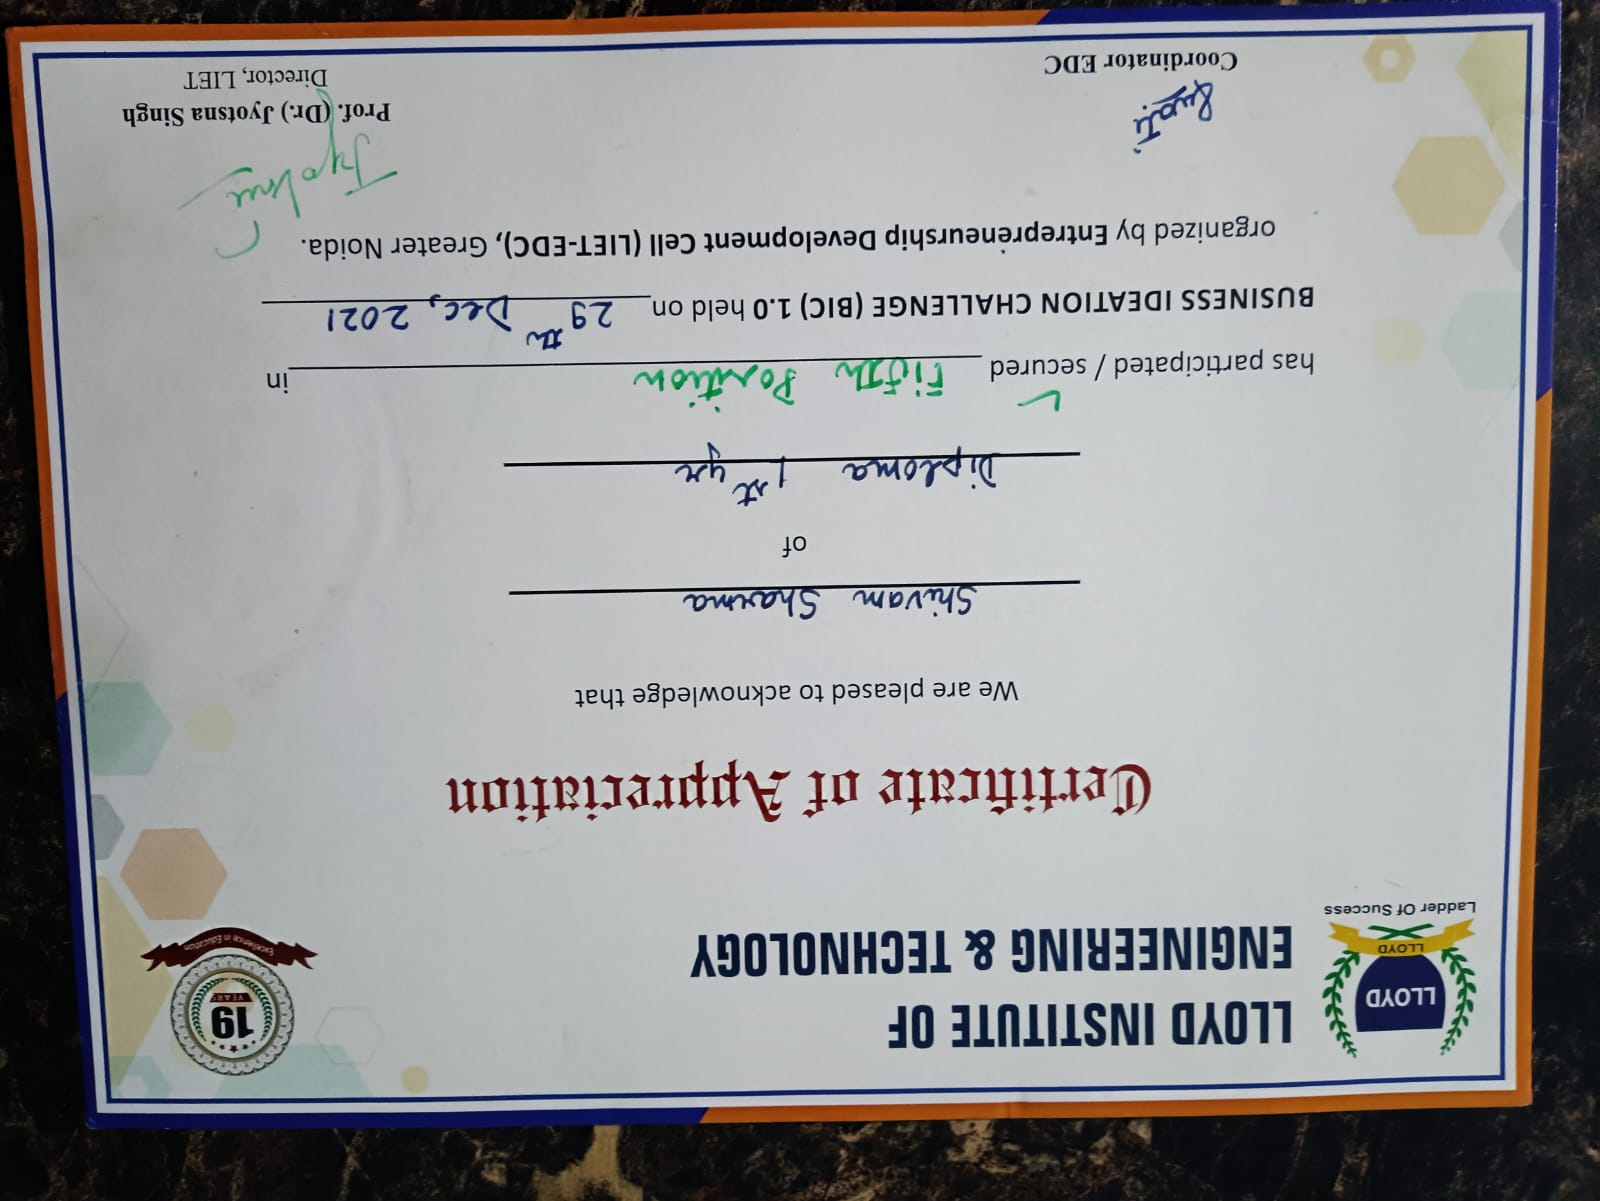 LLOYD
LLOYD
Ladder Of Success
LLOYD INSTITUTE OF
ENGINEERING & TECHNOLOGY
19
YEARS
Excellence in Education
Certificate of Appreciation
We are pleased to acknowledge that
Shivam Sharma
of
Diploma 1st yr
has participated / secured Fifth Position in
BUSINESS IDEATION CHALLENGE (BIC) 1.0 held on 29th Dec, 2021
organized by Entrepreneurship Development Cell (LIET-EDC), Greater Noida.
Jyotsna
Coordinator EDC
Prof. (Dr.) Jyotsna Singh
Director, LIET